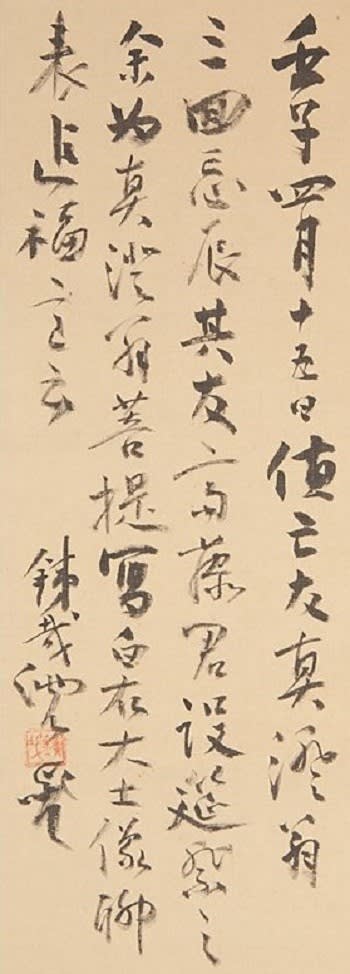 壬子四月十五日值亡友真澄翁
三回忌辰其友斎藤君設筵祭之
余為真澄翁菩提写白衣大士像聊
表追福之意云
鉄斎